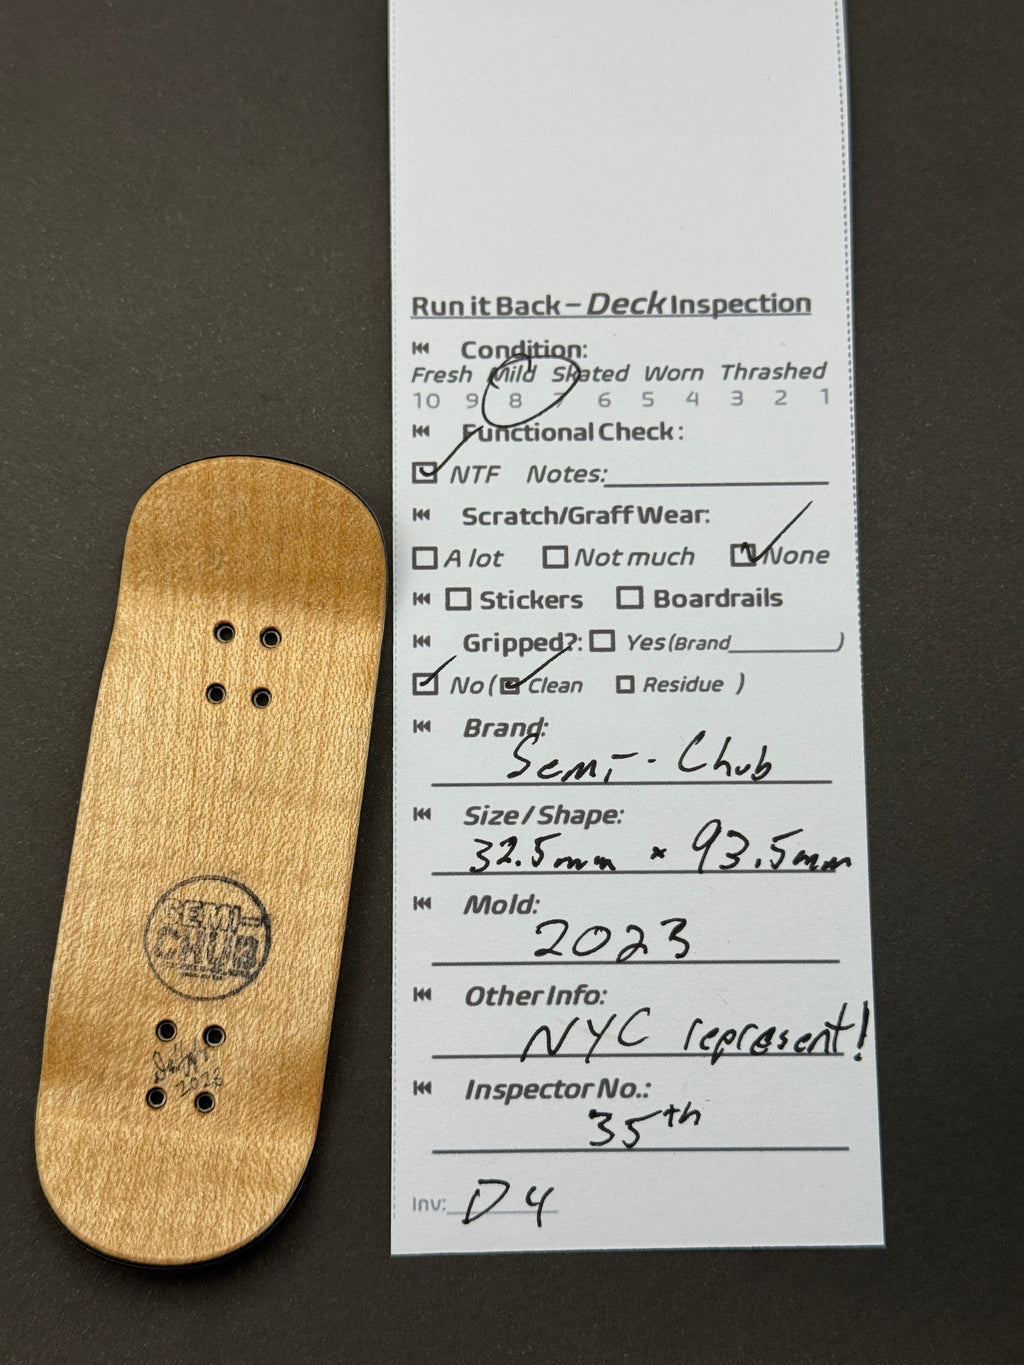 Run it Back – Deck Inspection
Condition:
Fresh Mild Skated Worn Thrashed
10 9 8 7 6 5 4 3 2 1
Functional Check:
NTF Notes:
Scratch/Graff Wear:
A lot Not much None
Stickers Boardrails
Gripped?: Yes (Brand )
No ( Clean Residue )
Brand:
Semi-Chub
Size / Shape:
32.5mm x 93.5mm
Mold:
2023
Other Info:
NYC represent!
Inspector No.:
35th
Inv: D4
SEMI-
CHUB
2023